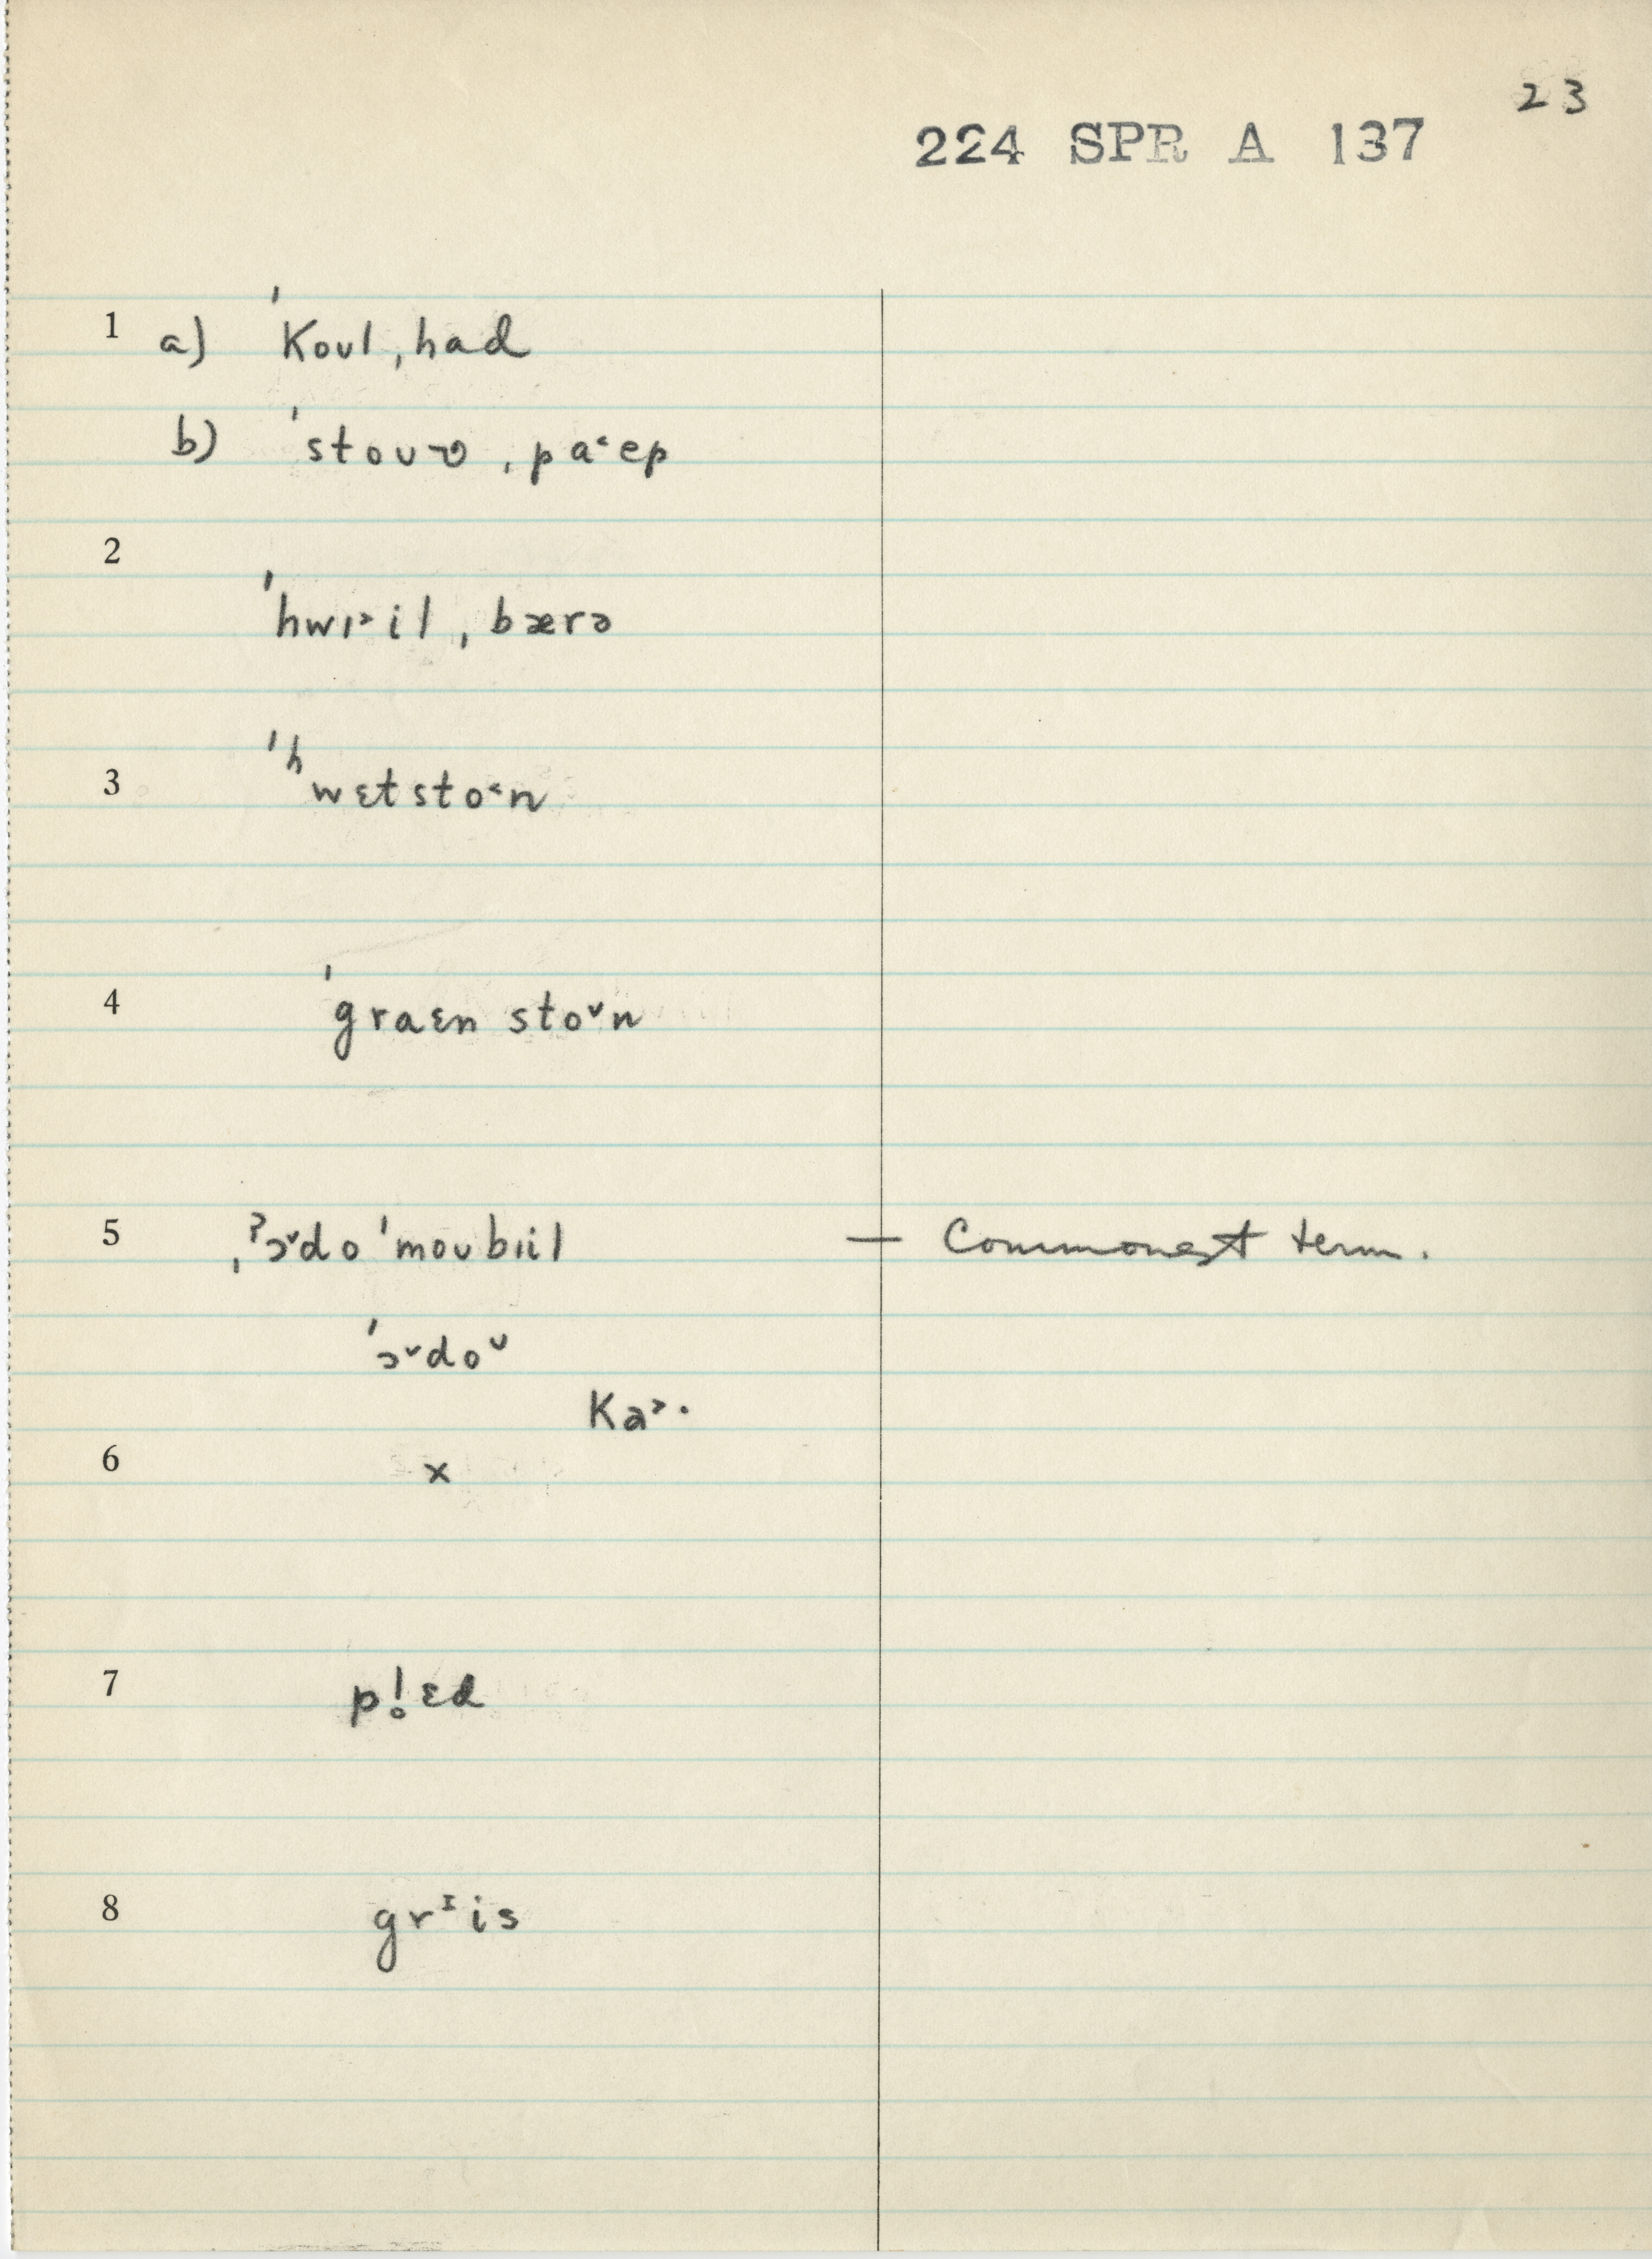 23
224 SPR A 137
1 a) ˈkoʊl ˌhad
b) ˈstoʊʋ ˌpa˂ep
2
ˈhwɪ˃il ˌbærə
3 ˈʰwɛtsto˂n
4 ˈgraɛn stoᵛn
5 ˌˀɔ˅do ˈmoʊbɪil — Commonest term.
ˈɔ˅doᵕ
ka˃·
6 x
7 pl̥ɛd
8 grᶦis